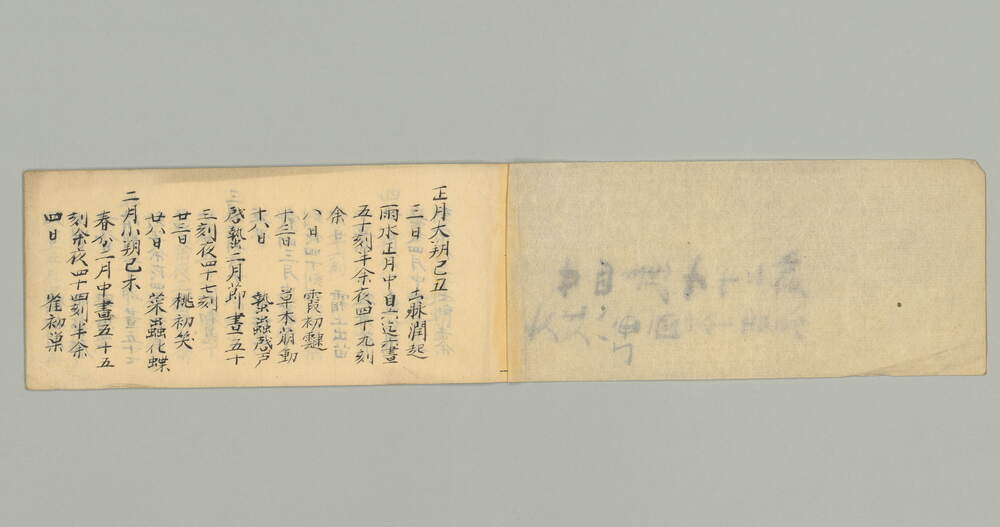 正月大朔己丑
三日 土脉潤起
雨水正月中自六迄六晝
五十刻半余夜四十九刻
余
八日 霞初靆
十三日 草木萠動
十八日 蟄蟲啓戸
啓蟄二月節 晝五十
三刻夜四十七刻
廿三日 桃初笑
廿八日 菜蟲化蝶
二月小朔己未
春分二月中晝五十五
刻余夜四十四刻半余
四日 雀初巣